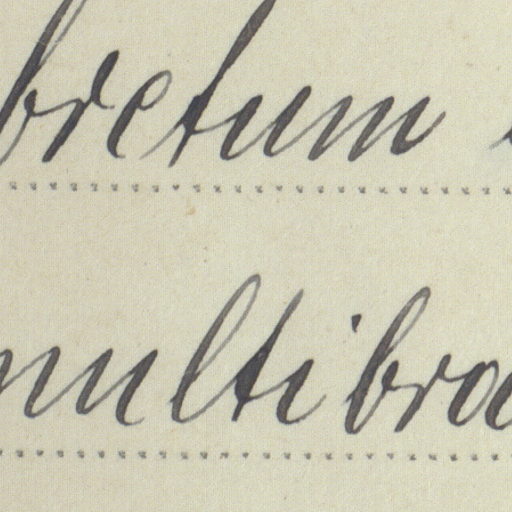 bretum
multibra